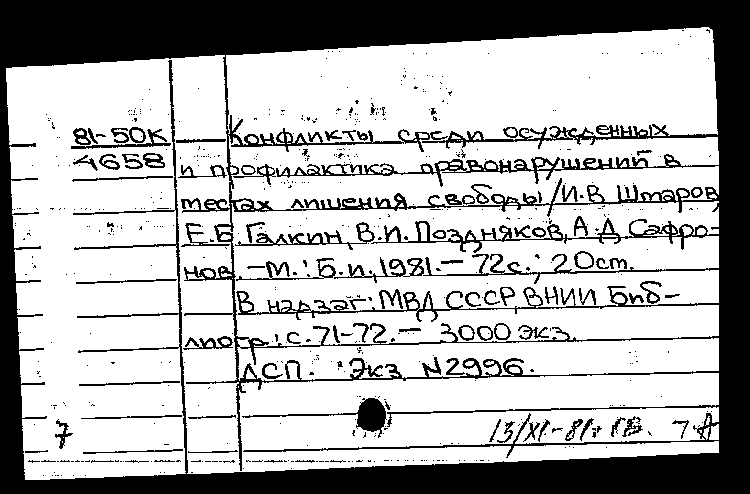 81-50К Конфликты среди осужденных
4658 и профилактика правонарушений в
местах лишения свободы/И.В. Шмаров,
Е.Б. Галкин, В.И. Поздняков, А.Д. Сафро-
нов. – М.: Б.и., 1981. – 72с.; 20см.
В надзаг: МВД СССР, ВНИИ. Биб-
лиогр.: с. 71-72. – 3000 экз.
ДСП. Экз. N2996.
7 13/XI-81г. 7 А